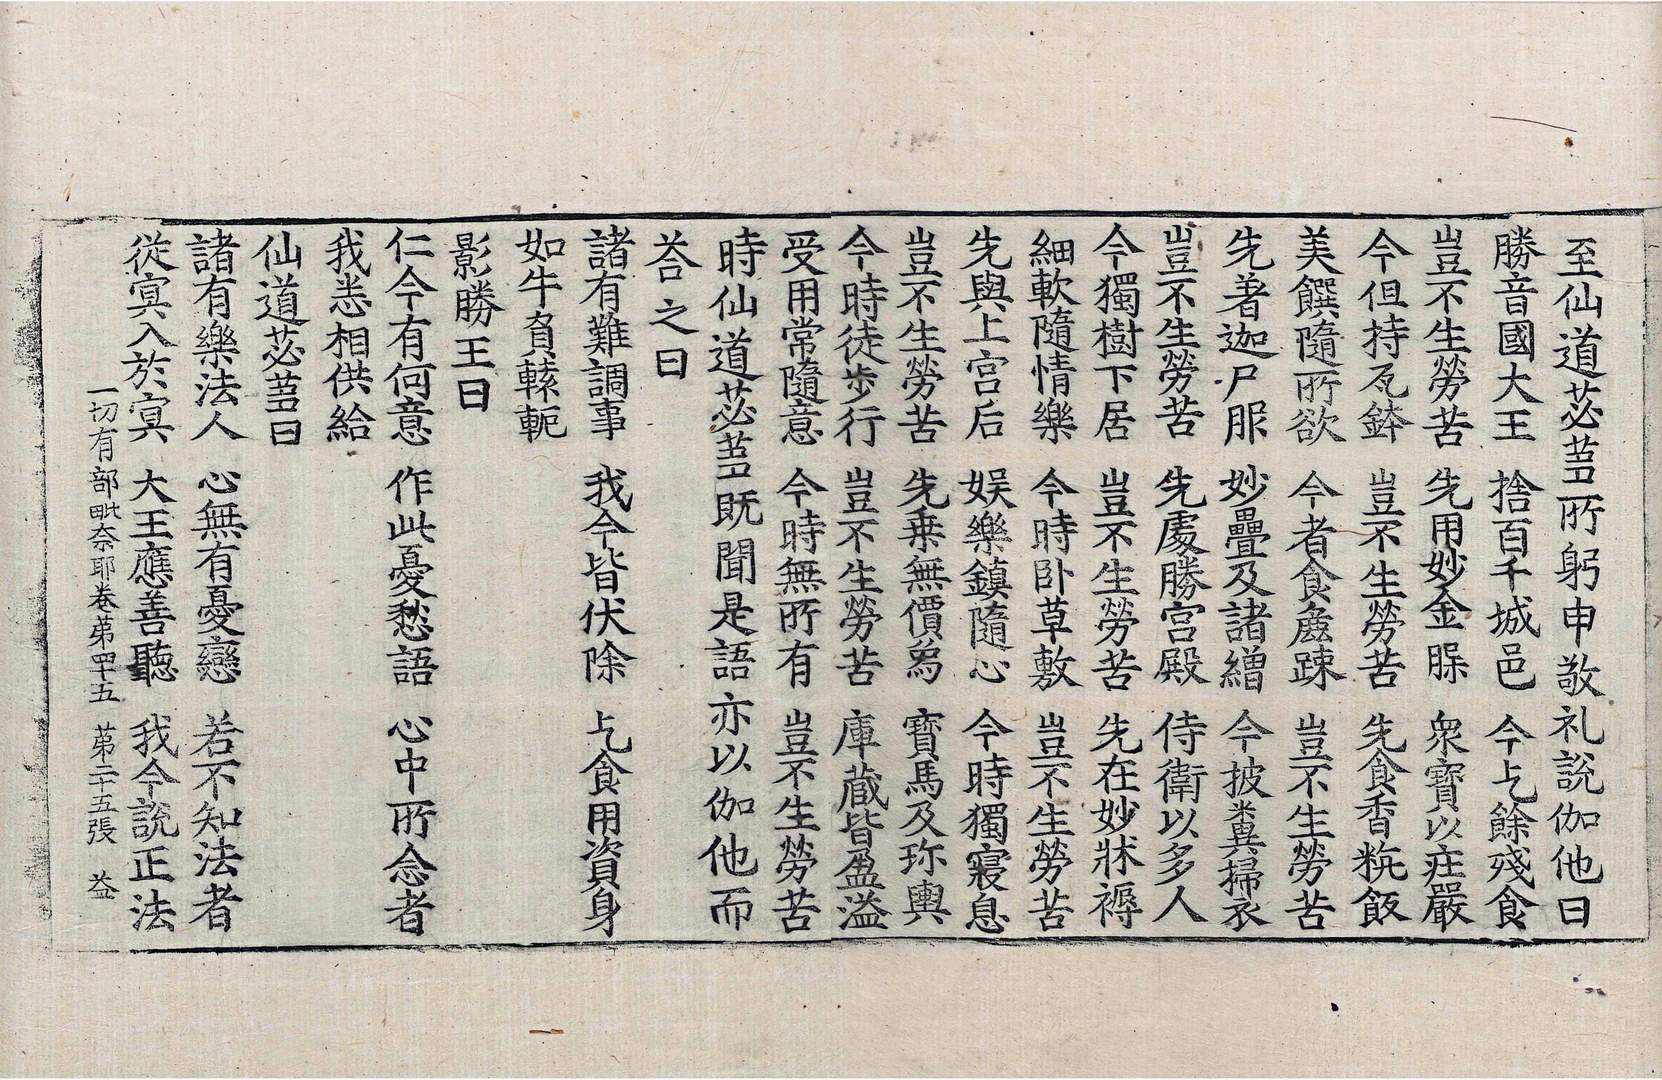 至仙道苾蒭所躬申敬礼說伽他曰
勝音國大王　捨百千城邑　今乞餘殘食
豈不生勞苦　先用妙金𦞙　衆寶以疰嚴
今但持瓦鉢　豈不生勞苦　先食香粇飯
美饌隨所欲　今者食麁踈　豈不生勞苦
先著迦尸服　妙疊及諸繒　今披糞掃衣
豈不生勞苦　先處勝宮殿　侍衛以多人
今獨樹下居　豈不生勞苦　先在妙牀褥
細軟隨情樂　今時卧草敷　豈不生勞苦
先與上宮后　娛樂鎮隨心　今時獨寢息
豈不生勞苦　先乗無價爲　寳馬及珎輿
今時徒步行　豈不生勞苦　庫藏皆盈溢
受用常隨意　今時無所有　豈不生勞苦
時仙道苾蒭旣聞是語亦以伽他而
荅之曰
諸有難調事　我今皆伏除　乞食用資身
如牛負𨎌軛
影勝王曰
仁今有何意　作此憂愁語　心中所念者
我悉相供給
仙道苾蒭曰
諸有樂法人　心無有憂戀　若不知法者
從冥入於冥　大王應善聽　我今說正法
一切有部毗奈耶卷苐四十五　苐二十五張　益